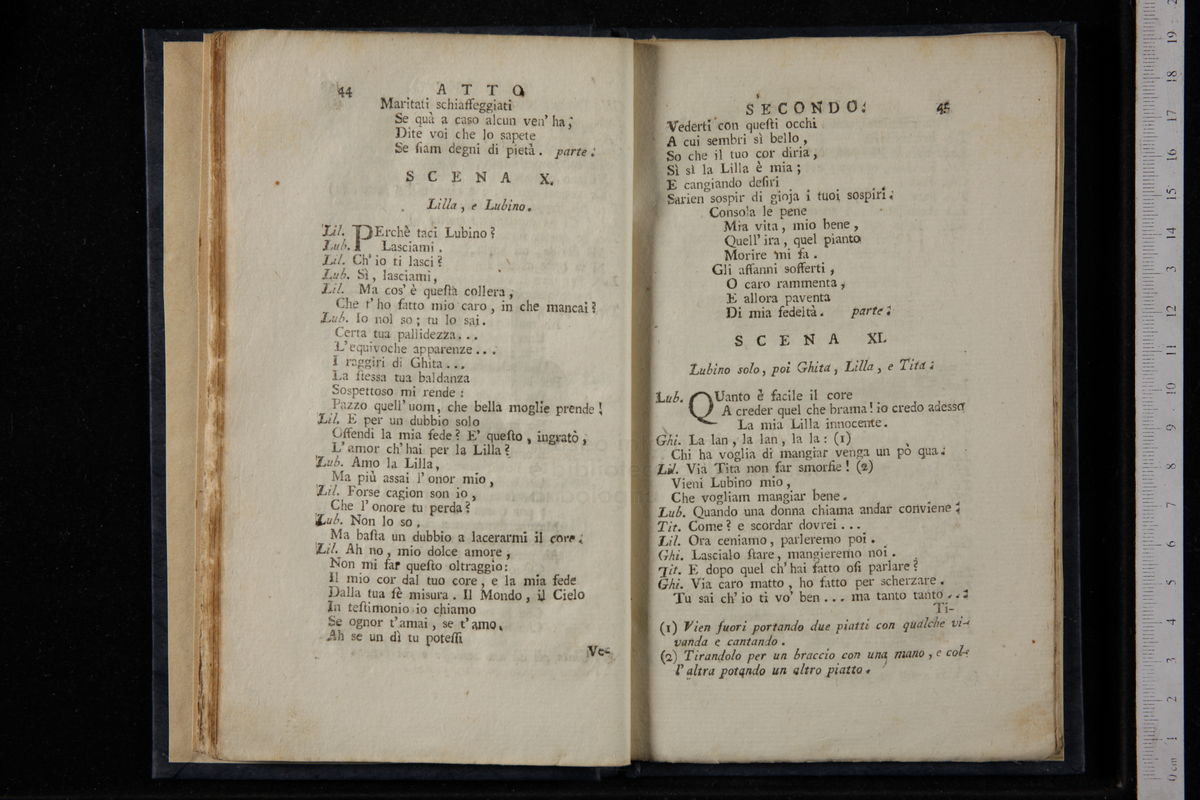 44 ATTO
Maritati schiaffeggiati
Se quà a caso alcun ven' ha;
Dite voi che lo sapete
Se ſiam degni di pietà. parte.
SCENA X.
Lilla, e Lubino.
Lil. PErchè taci Lubino?
Lub. Lasciami.
Lil. Ch' io ti lasci?
Lub. Sì, lasciami,
Lil. Ma cos' è queſta collera,
Che t' ho fatto mio caro, in che mancai?
Lub. Io nol so; tu lo sai.
Certa tua pallidezza...
L' equivoche apparenze...
I raggiri di Ghita...
La ſtessa tua baldanza
Sospettoso mi rende:
Pazzo quell' uom, che bella moglie prende!
Lil. E per un dubbio solo
Offendi la mia fede? E' queſto, ingrato,
L' amor ch' hai per la Lilla?
Lub. Amo la Lilla,
Ma più assai l' onor mio,
Lil. Forse cagion son io,
Che l' onore tu perda?
Lub. Non lo so.
Ma baſta un dubbio a lacerarmi il core.
Lil. Ah no, mio dolce amore,
Non mi far queſto oltraggio:
Il mio cor dal tuo core, e la mia fede
Dalla tua fè misura. Il Mondo, il Cielo
In teſtimonio io chiamo
Se ognor t' amai, se t' amo.
Ah se un dì tu poteſſi
Ve-
SECONDO. 45
Vederti con queſti occhi
A cui sembri sì bello,
So che il tuo cor diria,
Sì sì la Lilla è mia;
E cangiando deſiri
Sarien sospir di gioja i tuoi sospiri.
Consola le pene
Mia vita, mio bene,
Quell' ira, quel pianto
Morire mi fa.
Gli affanni sofferti,
O caro rammenta,
E allora paventa
Di mia fedeltà. parte.
SCENA XI.
Lubino solo, poi Ghita, Lilla, e Tita.
Lub. QUanto è facile il core
A creder quel che brama! io credo adesso
La mia Lilla innocente.
Ghi. La lan, la lan, la la: (1)
Chi ha voglia di mangiar venga un pò qua.
Lil. Via Tita non far smorfie! (2)
Vieni Lubino mio,
Che vogliam mangiar bene.
Lub. Quando una donna chiama andar conviene.
Tit. Come? e scordar dovrei...
Lil. Ora ceniamo, parleremo poi.
Ghi. Lascialo ſtare, mangieremo noi.
Tit. E dopo quel ch' hai fatto oſi parlare?
Ghi. Via caro matto, ho fatto per scherzare.
Tu sai ch' io ti vo' ben... ma tanto tanto...
Ti-
(1) Vien fuori portando due piatti con qualche vi-
vanda e cantando.
(2) Tirandolo per un braccio con una mano, e col-
l' altra potando un altro piatto.